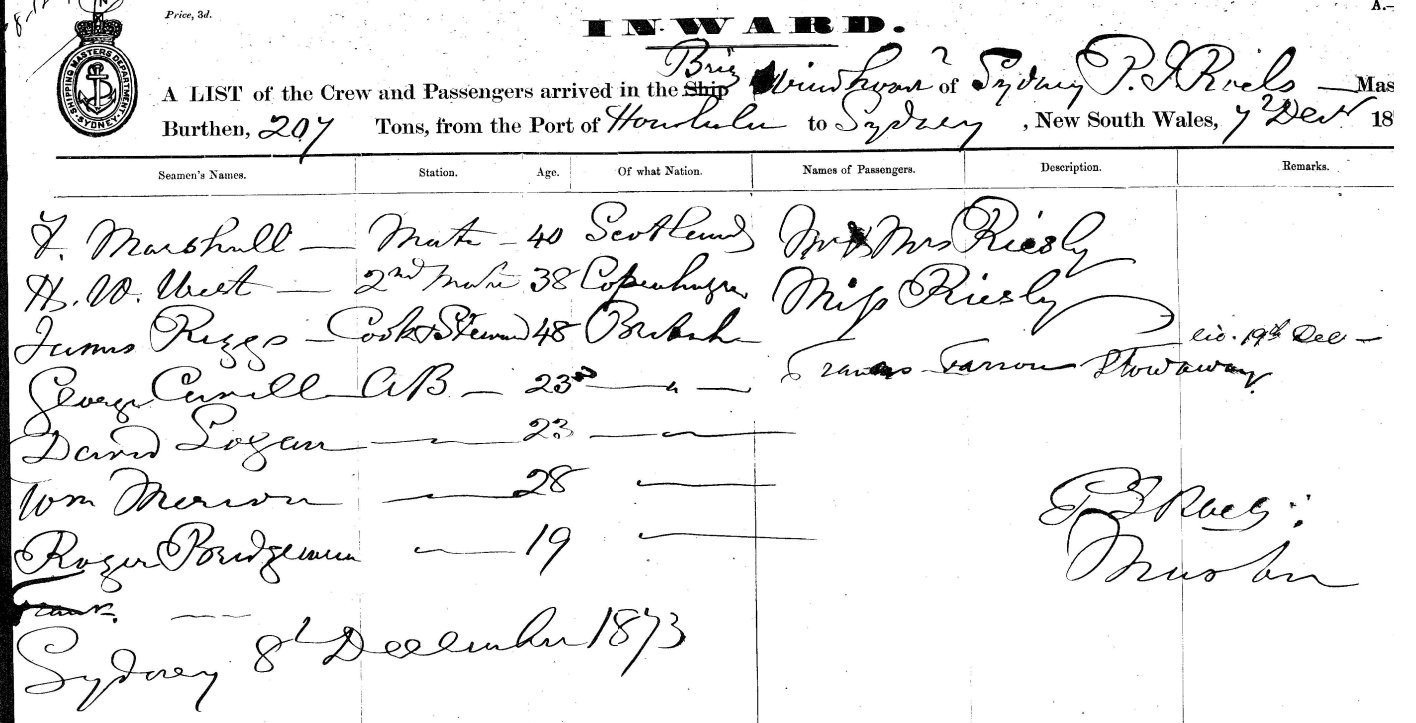 Price, 3d.
A.—
INWARD.
SHIPPING MASTERS DEPARTMENT. SYDNEY.
Brig
A LIST of the Crew and Passengers arrived in the Ship of Sydney P. Mas
Burthen, 207 Tons, from the Port of Honolulu to Sydney, New South Wales, 7th Decr 18
Seamen's Names. Station. Age. Of what Nation. Names of Passengers. Description. Remarks.
Marshall — Mate — 40 Scotland Mr & Mrs Riesly
H. W. West — 2nd Mate 38 Copenhagen Miss Riesly
James Riggs — Cook & Steward 48 British 19th Dec —
George AB — 23 — " — Farron Stowaway
David Logan — " — 23 — " —
Wm — " — 28 — " —
Roger Bridgeman — " — 19 — " —
Frank
P
Master
Sydney 8th December 1873